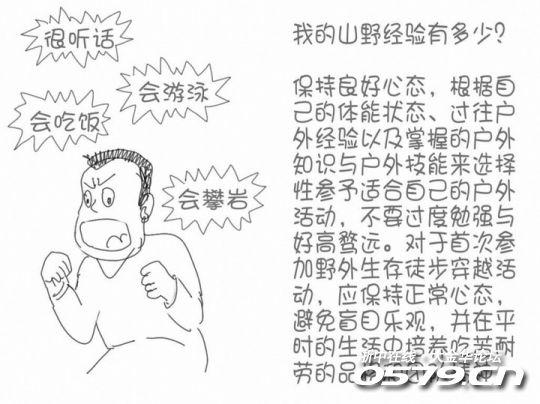 很听话
会游泳
会吃饭
会攀岩
我的山野经验有多少?
保持良好心态，根据自
己的体能状态、过往户
外经验以及掌握的户外
知识与户外技能来选择
性参予适合自己的户外
活动，不要过度勉强与
好高骛远。对于首次参
加野外生存徒步穿越活
动，应保持正常心态，
避免盲目乐观，并在平
时的生活中培养吃苦耐
劳的品格
浙中在线
金华论坛
0579.cn